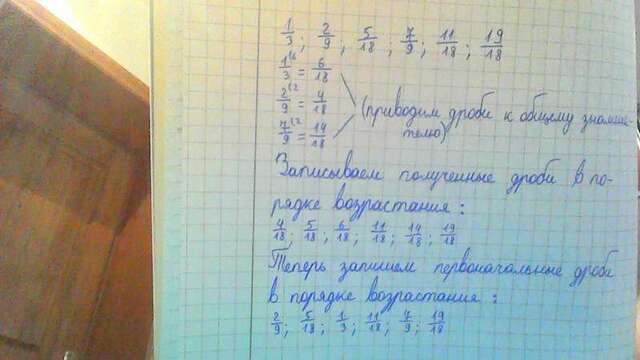 1/3; 2/9; 5/18; 7/9; 11/18; 19/18
1/3 (6 = 6/18
2/9 (2 = 4/18
(приводим дроби к общему знаме-
7/9 (2 = 14/18
телю)
Записываем полученные дроби в по-
рядке возрастания:
4/18; 5/18; 6/18; 11/18; 14/18; 19/18
Теперь запишем первоначальные дроби
в порядке возрастания:
2/9; 5/18; 1/3; 11/18; 7/9; 19/18